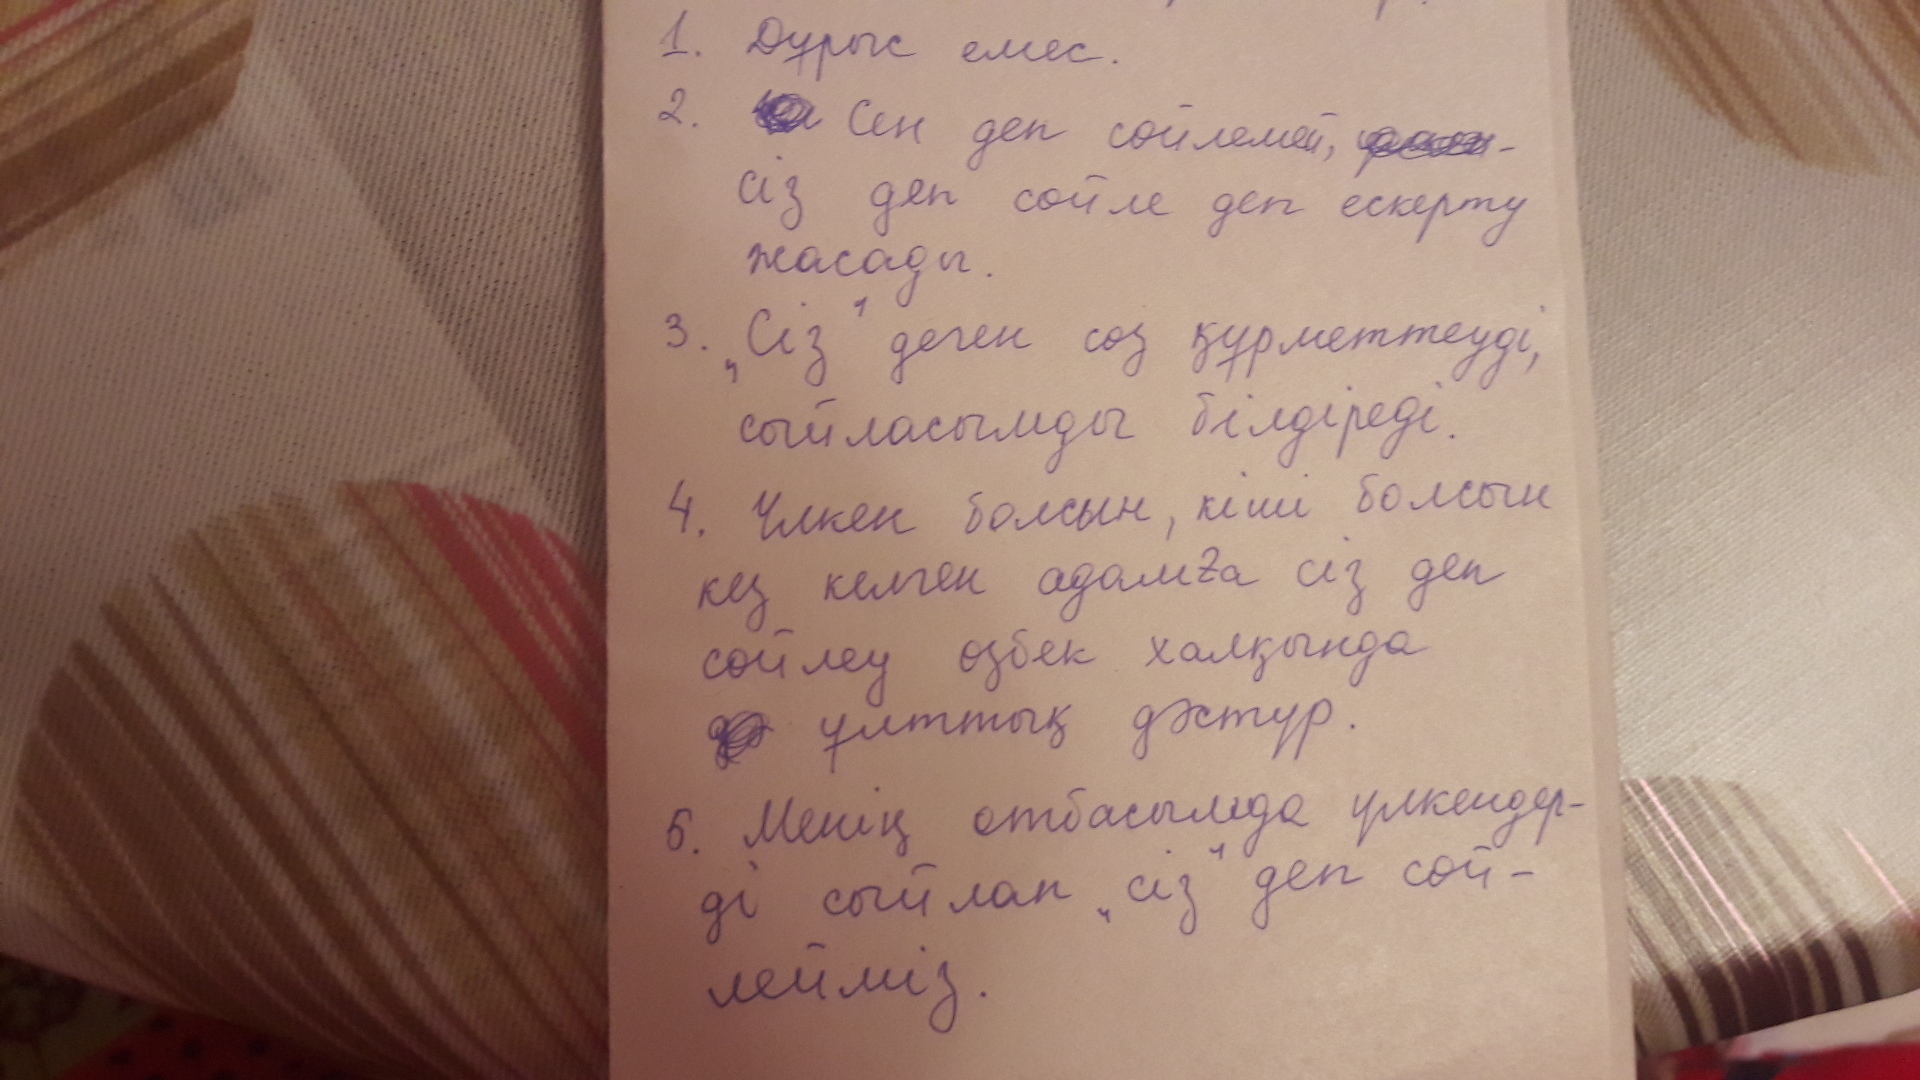 1. Дұрыс емес.
2. Сен деп сөйлемей,
сіз деп сөйле деп ескерту
жасады.
3. „Сіз“ деген сөз құрметтеуді,
сыйласымды білдіреді.
4. Үлкен болсын, кіші болсын
кез келген адамға сіз деп
сөйлеу өзбек халқында
ұлттық дәстүр.
5. Менің отбасымда үлкендер-
ді сыйлап „сіз“ деп сөй-
лейміз.